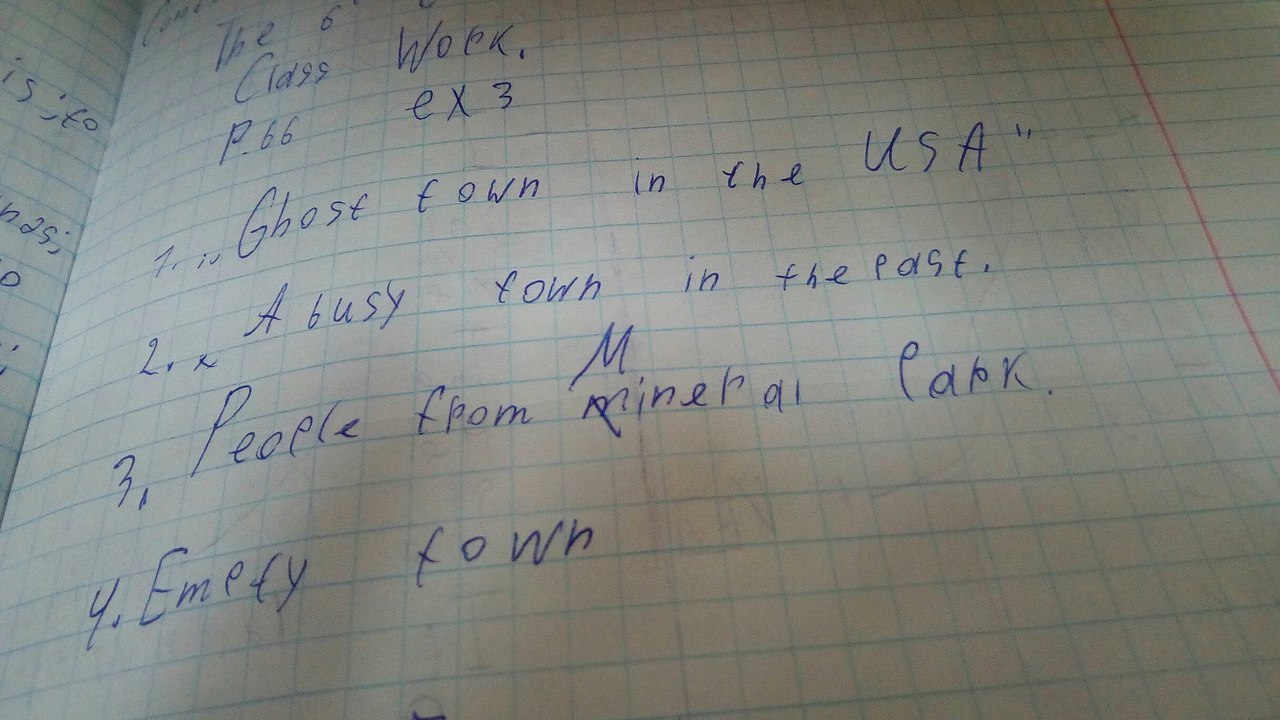 The 6
Class Work.
P.66 ex 3
1. „Ghost town in the USA"
2. A busy town in the past.
3. People from Mineral Park.
4. Empty town